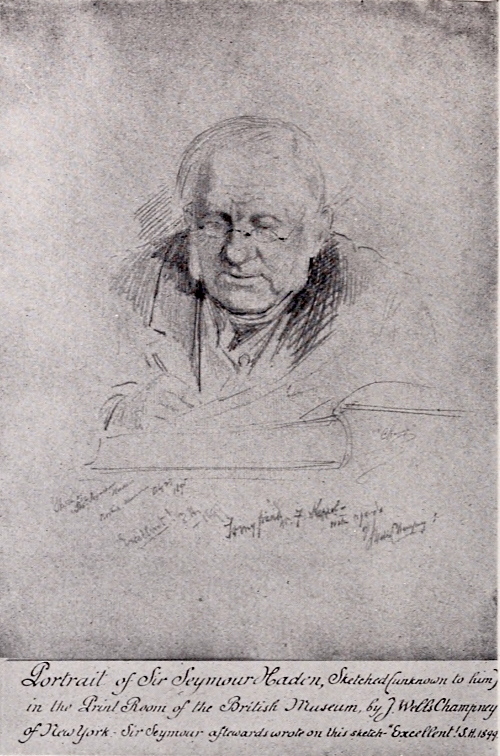 Excellent!
To my friend F. Keppel -
Portrait of Sir Seymour Haden, Sketched (unknown to him)
in the Print Room of the British Museum, by J. Wells Champney
of New York - Sir Seymour aftewards wrote on this sketch - "Excellent! S.H. 1897